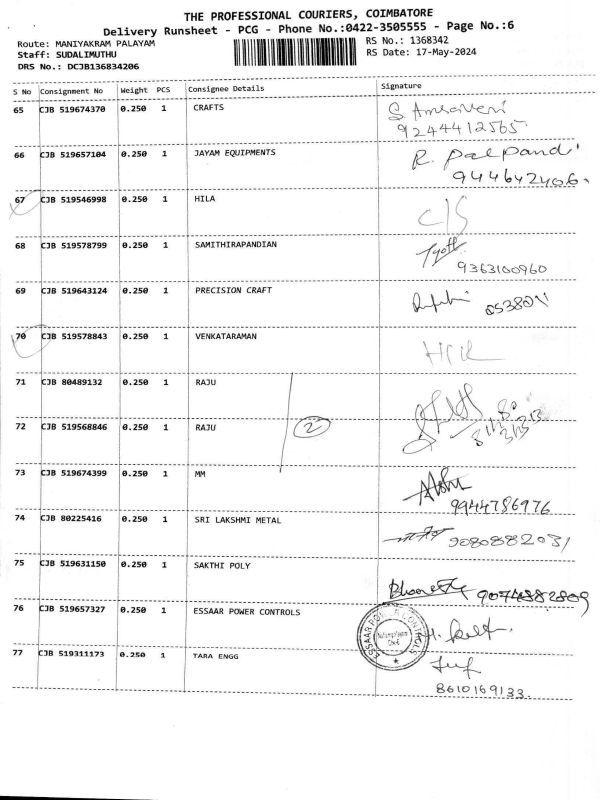 THE PROFESSIONAL COURIERS, COIMBATORE
Delivery Runsheet - PCG - Phone No.:0422-3505555 - Page No.:6
Route: MANIYAKRAM PALAYAM RS No.: 1368342
Staff: SUDALIMUTHU RS Date: 17-May-2024
DRS No.: DCJB136834206
S No Consignment No Weight PCS Consignee Details Signature
65 CJB 519674370 0.250 1 CRAFTS
9244412565
66 CJB 519657104 0.250 1 JAYAM EQUIPMENTS R. Palpandi
9446642406
67 CJB 519546998 0.250 1 HILA C/S
68 CJB 519578799 0.250 1 SAMITHIRAPANDIAN Jyoti
9363100960
69 CJB 519643124 0.250 1 PRECISION CRAFT
70 CJB 519578843 0.250 1 VENKATARAMAN
71 CJB 80489132 0.250 1 RAJU
72 CJB 519568846 0.250 1 RAJU 2
73 CJB 519674399 0.250 1 MM
9944786976
74 CJB 80225416 0.250 1 SRI LAKSHMI METAL 9080882031
75 CJB 519631150 0.250 1 SAKTHI POLY
9074882809
76 CJB 519657327 0.250 1 ESSAAR POWER CONTROLS ESSAAR POWER CONTROLS
77 CJB 519311173 0.250 1 TARA ENGG
8610169133